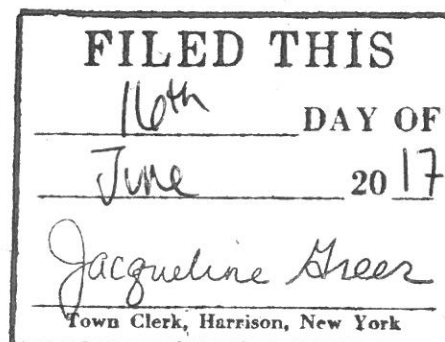 FILED THIS
16th DAY OF
June 20 17
Jacqueline Greer
Town Clerk, Harrison, New York